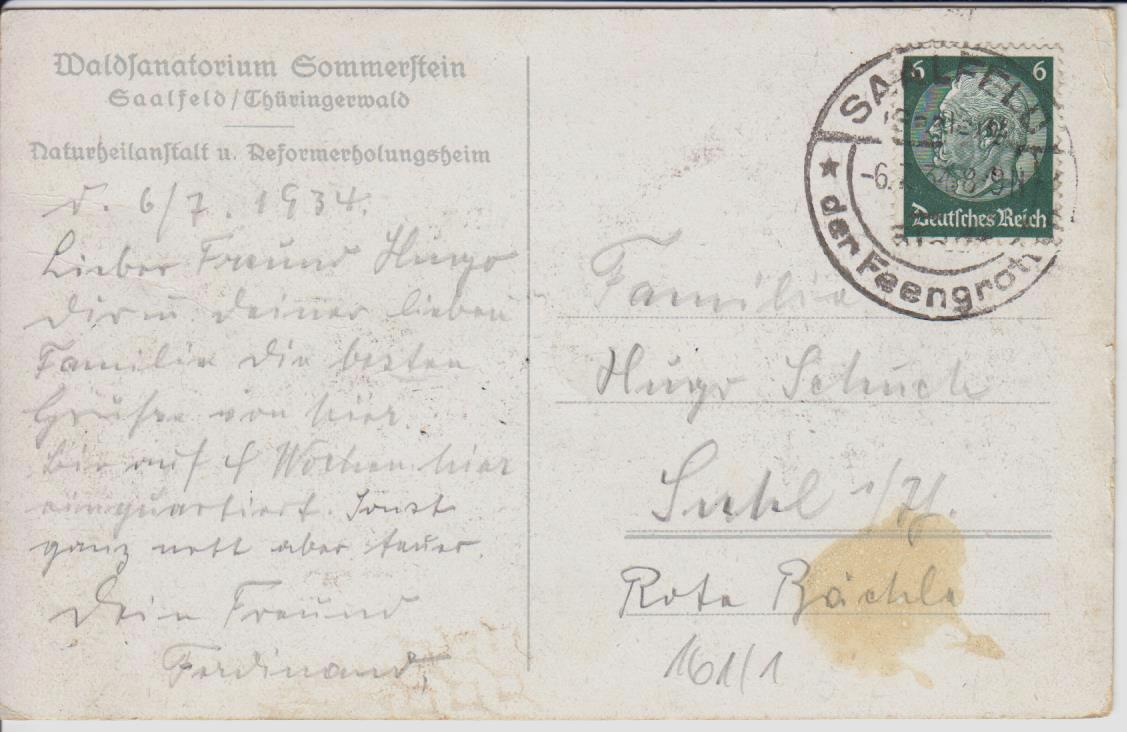 Waldsanatorium Sommerstein
Saalfeld/Thüringerwald
Naturheilanstalt u. Reformerholungsheim
d. 6/7. 1934.
Lieber Freund Hugo
Dir u deiner lieben
Familie die besten
Grüße von hier.
Bin auf 4 Wochen hier
einquartiert. Sonst
ganz nett aber teuer.
Dein Freund
Ferdinand
SAALFELD
-6.7.34 8-9N
der Feengrotten
6 6
Deutsches Reich
Familie
Hugo Schuch
Suhl i/Th.
Rote Bächle
161/1